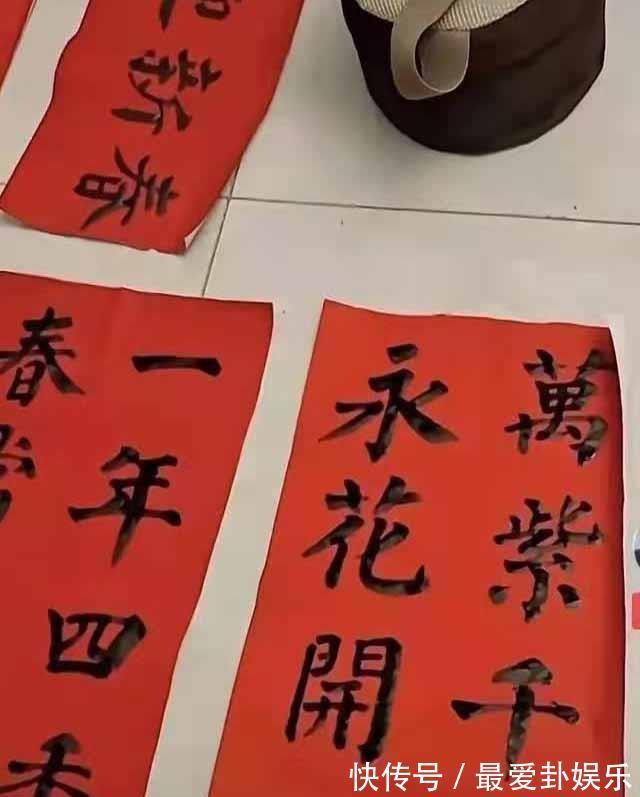 新春
萬紫千
永花開
一年四
春
快传号 / 最爱卦娱乐